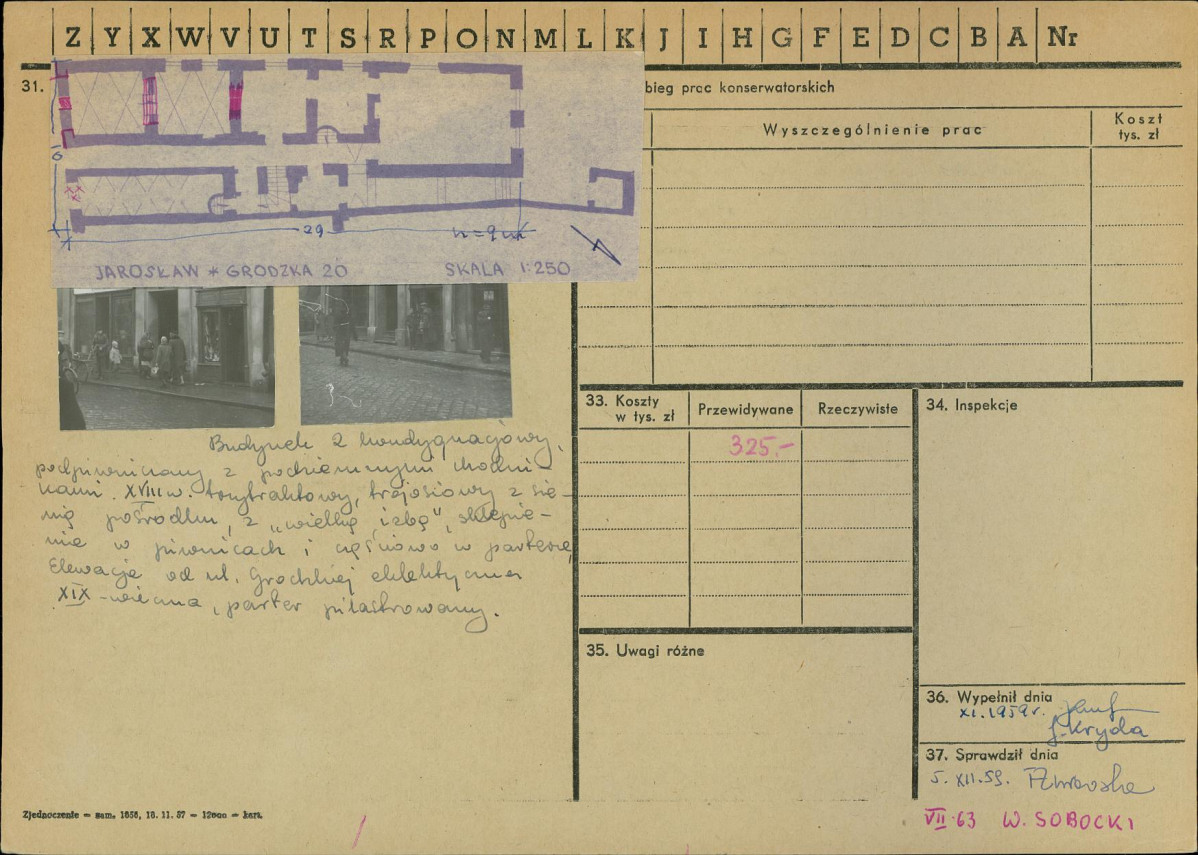 Z Y X W V U T S R P O N M L K J I H G F E D C B A Nr
31.
bieg prac konserwatorskich
Wyszczególnienie prac
Koszt
tys. zł
6
29
h=9 m
JAROSŁAW * GRODZKA 20
SKALA 1:250
Budynek 2 kondygnacjowy,
podpiwniczony z podziemnymi chodni-
kami. XVIII w. trzytraktowy, trójosiowy z sie-
nią pośrodku, z „wielką izbą", sklepie-
nie w piwnicach i częściowo w parterze,
Elewacja od ul. Grodzkiej eklektyczna
XIX-wieczna, parter pilastrowany.
33. Koszty
w tys. zł
Przewidywane
Rzeczywiste
325.-
34. Inspekcje
35. Uwagi różne
36. Wypełnił dnia
XI. 1959 r.
J. Kryda
37. Sprawdził dnia
5. XII. 59.
VII 63 W. SOBOCKI
Zjednoczenie — zam. 1656, 18. 11. 57 — 12000 — kart.